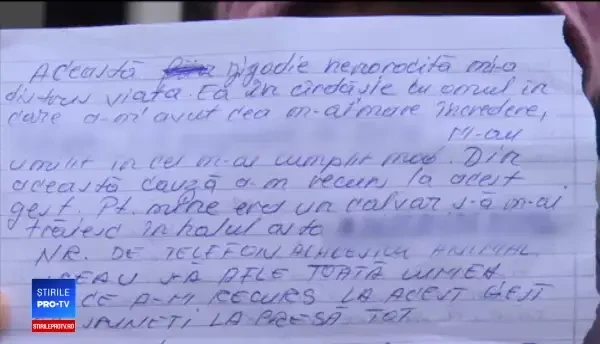 Această jigodie nenorocită mi-a
distrus viața. Ea în cârdășie cu omul în
care a-m avut cea m-ai mare încredere,
M-au
umilit in cel m-ai cumplit mod. Din
această cauză a-m recurs la acest
gest. Pt. mine era un calvar să m-ai
trăiesc în halul asta
NR. DE TELEFON ANIMAL
VREAU SĂ AFLE TOATĂ LUMEA
CE A-M RECURS LA ACEST GEST
SPUNEȚI LA PRESA TOT
ȘTIRILE
PRO•TV
STIRILEPROTV.RO